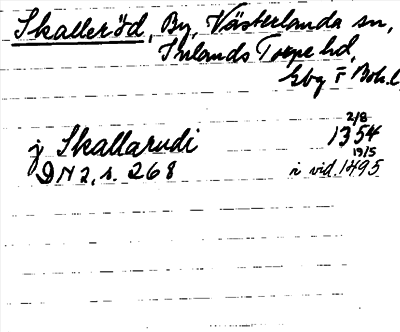 Skalleröd, By, Västerlanda sn,
Inlands Torpe hd,
Gbg o Boh. l
j Skallarudi 2/8 1354
DN 2, s. 268 19/5 i vid. 1495